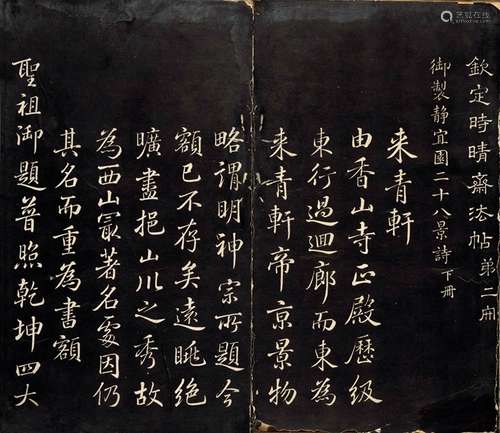 欽定時晴齋法帖第二冊
御製靜宜園二十八景詩下冊
来青軒
由香山寺正殿歷級
東行過迴廊而東為
来青軒帝京景物
略謂明神宗所題今
額已不存矣遠眺絕
曠盡挹山川之秀故
為西山最著名處因仍
其名而重為書額
聖祖御題普照乾坤四大